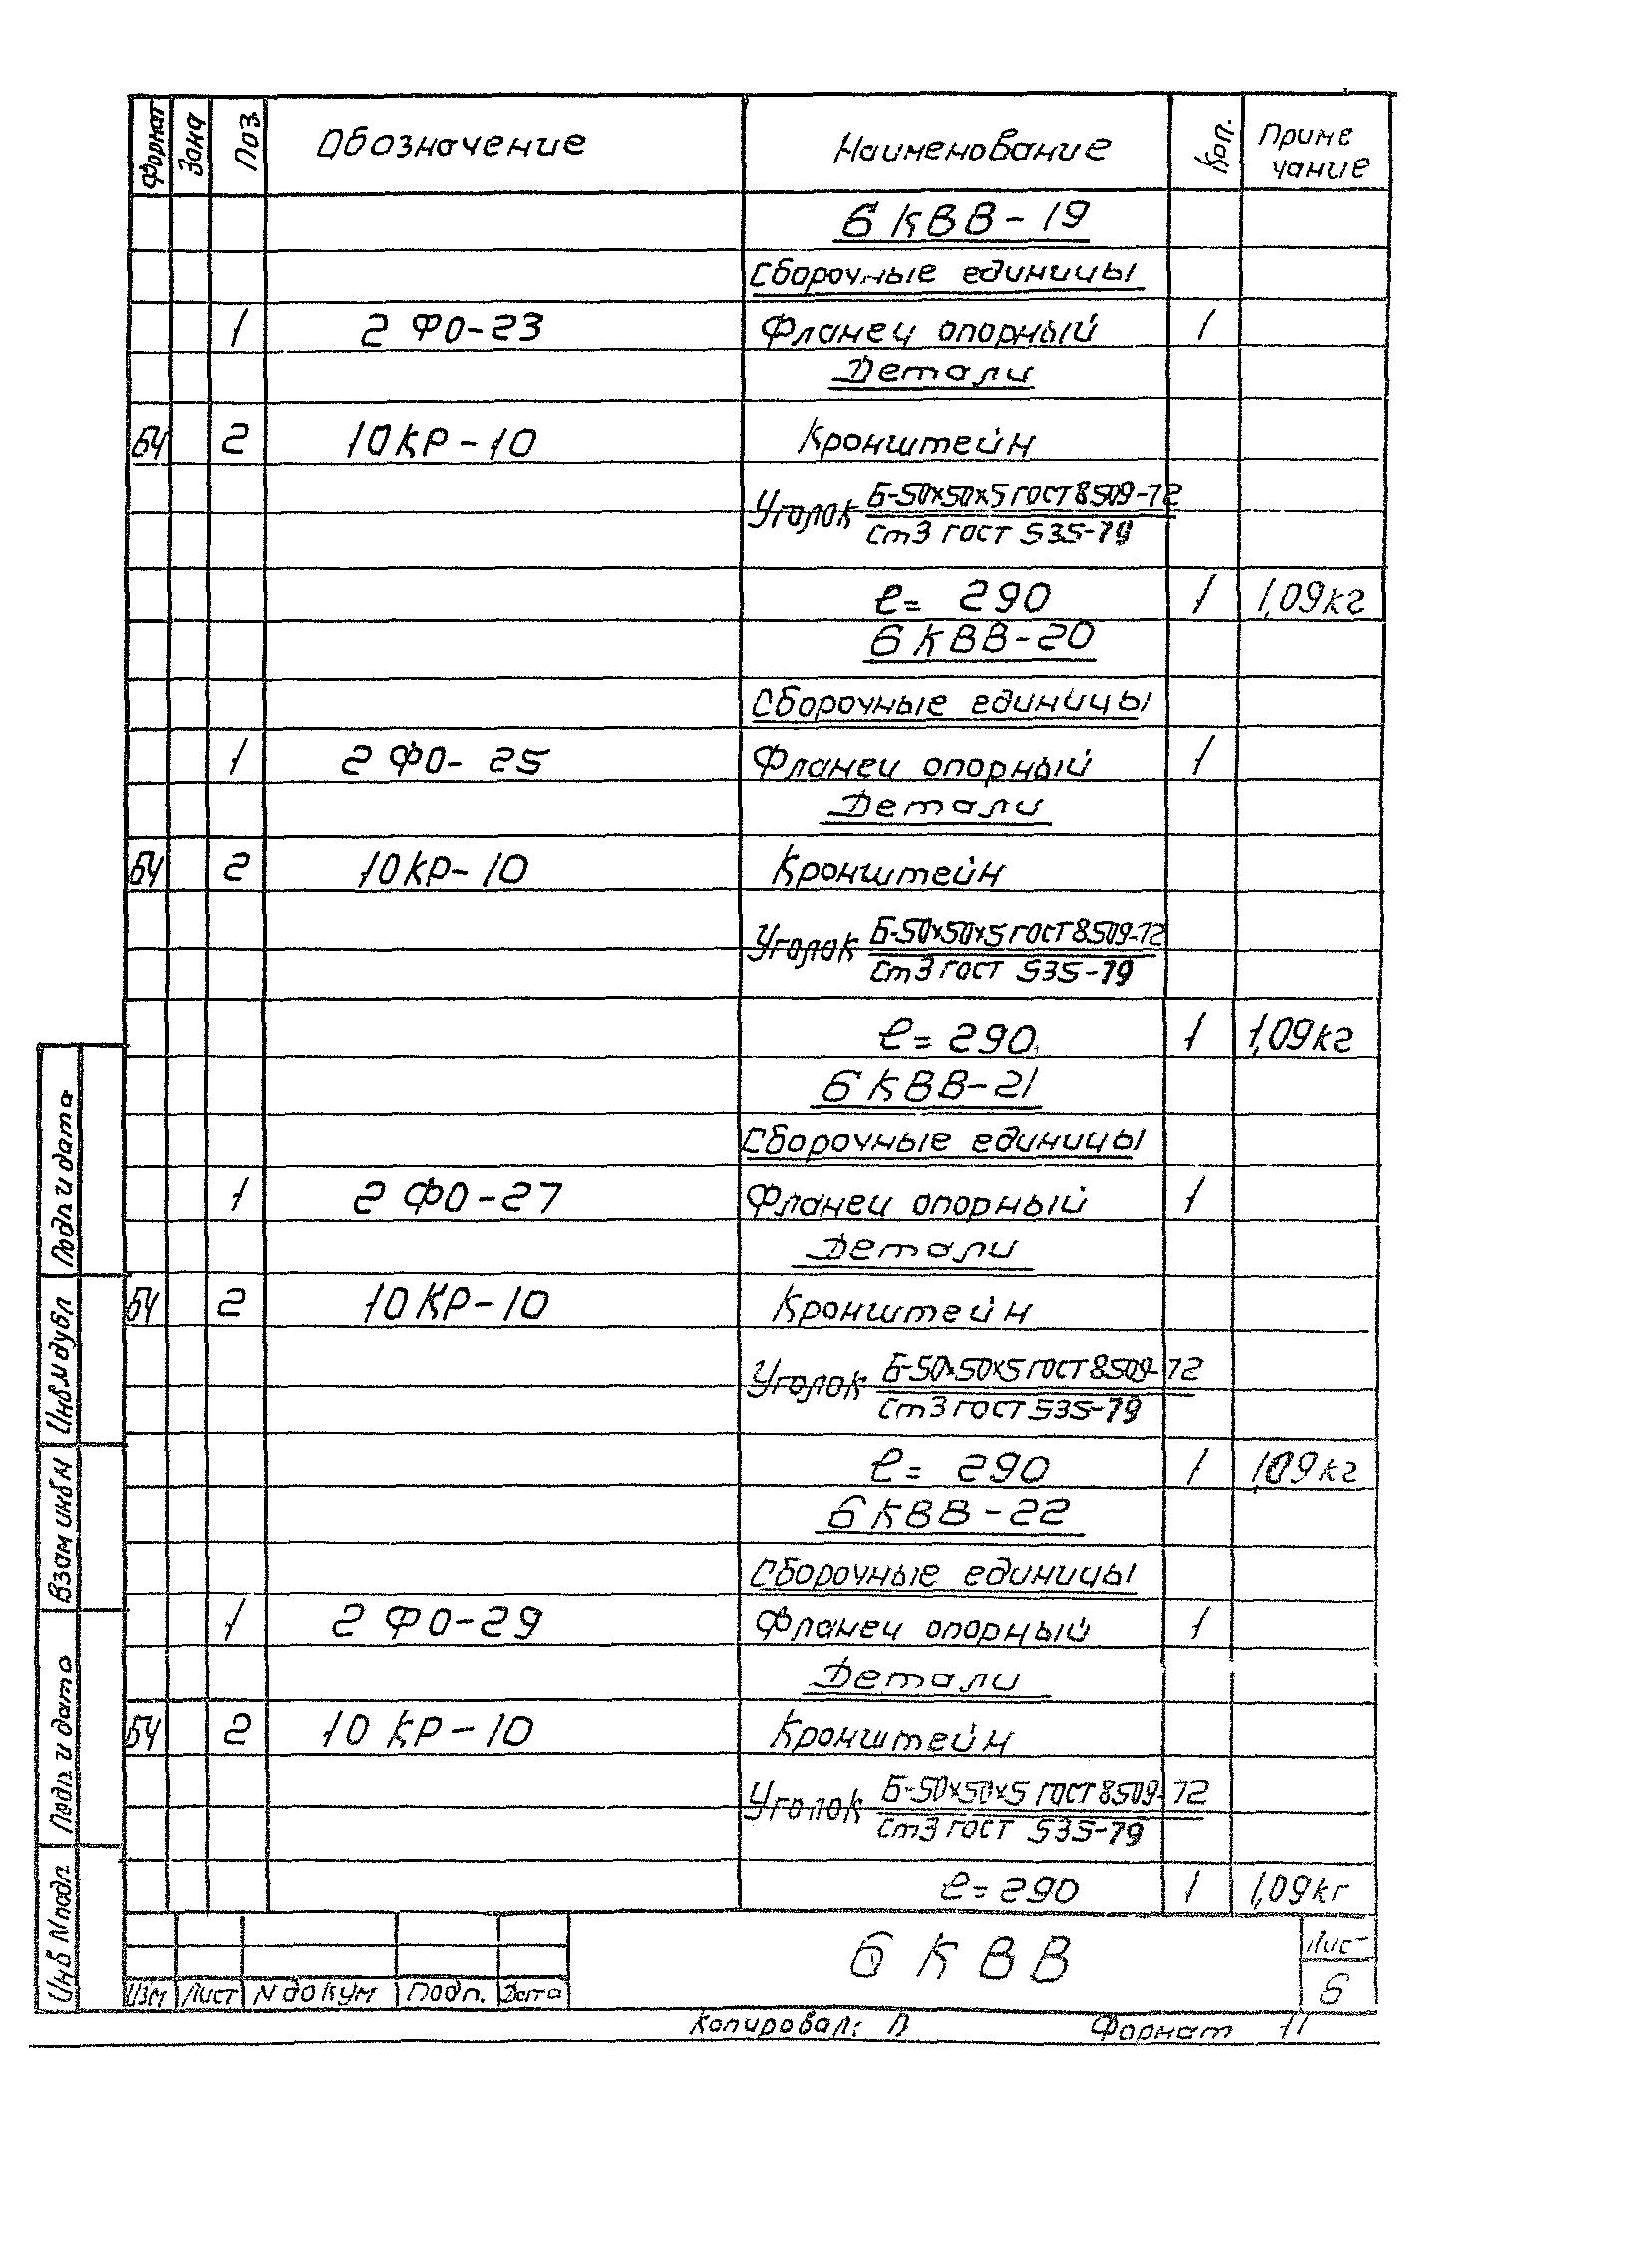 Формат Зона Поз Обозначение Наименование Кол. Приме чание
6 КВВ-19
Сборочные единицы
1 2 ФО-23 Фланец опорный 1
Детали
БЧ 2 10КР-10 Кронштейн
Уголок Б-50х50х5 ГОСТ 8509-72
Ст3 ГОСТ 535-79
ℓ= 290 1 1,09кг
6 КВВ-20
Сборочные единицы
1 2 ФО-25 Фланец опорный 1
Детали
БЧ 2 10КР-10 Кронштейн
Уголок Б-50х50х5 ГОСТ 8509-72
Ст3 ГОСТ 535-79
ℓ= 290 1 1,09кг
6 КВВ-21
Сборочные единицы
1 2 ФО-27 Фланец опорный 1
Детали
БЧ 2 10КР-10 Кронштейн
Уголок Б-50х50х5 ГОСТ 8509-72
Ст3 ГОСТ 535-79
ℓ= 290 1 1,09кг
6 КВВ-22
Сборочные единицы
1 2 ФО-29 Фланец опорный 1
Детали
БЧ 2 10 КР-10 Кронштейн
Уголок Б-50х50х5 ГОСТ 8509-72
Ст3 ГОСТ 535-79
ℓ=290 1 1,09кг
Подп и дата
Инв.N дубл
Взам инв N
Подп и дата
Инв N подп
Изм Лист N докум Подп. Дата
6 КВВ
Лист
6
Копировал: Формат 11